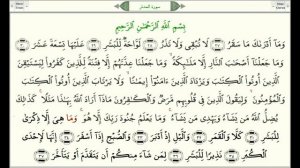 سورة المدثر
بِسْمِ ٱللَّهِ ٱلرَّحْمَٰنِ ٱلرَّحِيمِ
وَمَآ أَدْرَىٰكَ مَا سَقَرُ ٢٧ لَا تُبْقِى وَلَا تَذَرُ ٢٨ لَوَّاحَةٌ لِّلْبَشَرِ ٢٩ عَلَيْهَا تِسْعَةَ عَشَرَ ٣٠
وَمَا جَعَلْنَآ أَصْحَٰبَ ٱلنَّارِ إِلَّا مَلَٰٓئِكَةً وَمَا جَعَلْنَا عِدَّتَهُمْ إِلَّا فِتْنَةً لِّلَّذِينَ كَفَرُوا۟ لِيَسْتَيْقِنَ
ٱلَّذِينَ أُوتُوا۟ ٱلْكِتَٰبَ وَيَزْدَادَ ٱلَّذِينَ ءَامَنُوٓا۟ إِيمَٰنًا وَلَا يَرْتَابَ ٱلَّذِينَ أُوتُوا۟ ٱلْكِتَٰبَ
وَٱلْمُؤْمِنُونَ وَلِيَقُولَ ٱلَّذِينَ فِى قُلُوبِهِم مَّرَضٌ وَٱلْكَٰفِرُونَ مَاذَآ أَرَادَ ٱللَّهُ بِهَٰذَا مَثَلًا كَذَٰلِكَ
يُضِلُّ ٱللَّهُ مَن يَشَآءُ وَيَهْدِى مَن يَشَآءُ وَمَا يَعْلَمُ جُنُودَ رَبِّكَ إِلَّا هُوَ وَمَا هِىَ إِلَّا ذِكْرَىٰ
لِلْبَشَرِ ٣١ كَلَّا وَٱلْقَمَرِ ٣٢ وَٱلَّيْلِ إِذْ أَدْبَرَ ٣٣ وَٱلصُّبْحِ إِذَآ أَسْفَرَ ٣٤ إِنَّهَا لَإِحْدَى
ٱلْكُبَرِ ٣٥ نَذِيرًا لِّلْبَشَرِ ٣٦ لِمَن شَآءَ مِنكُمْ أَن يَتَقَدَّمَ أَوْ يَتَأَخَّرَ ٣٧